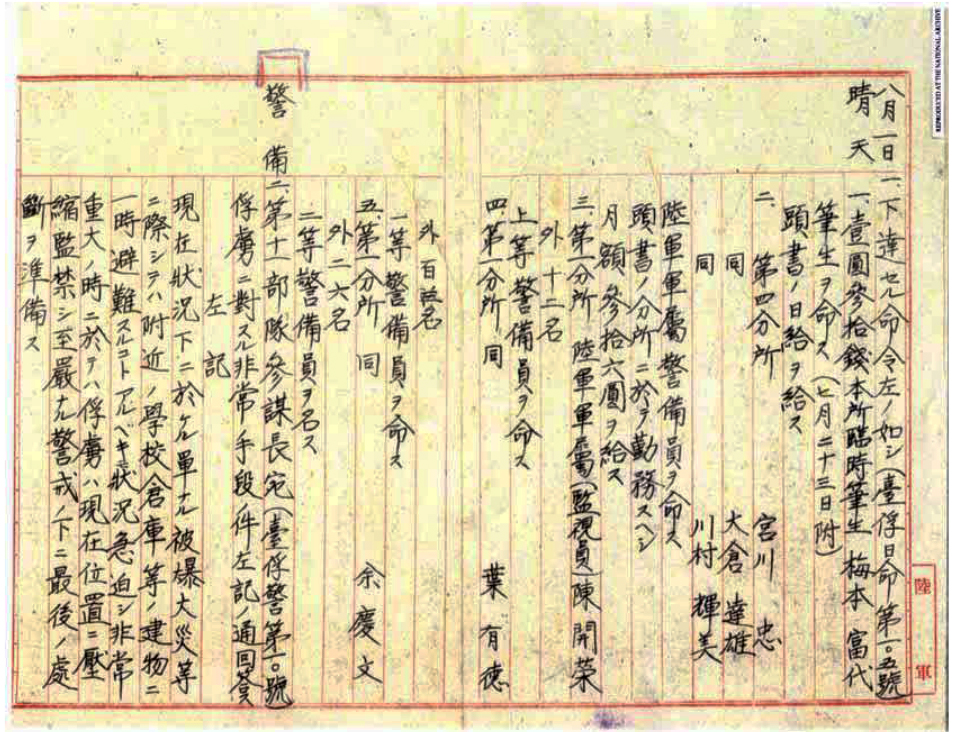 八月一日
晴天
一、下達セル命令左ノ如シ(臺俘日命第一〇五號)
一、壹圓參拾錢本所臨時筆生 梅本富代
筆生ヲ命ス(七月二十三日附)
頭書ノ日給ヲ給ス
二、第四分所 宮川忠
同 大倉達雄
同 川村輝美
陸軍軍屬警備員ヲ命ス
頭書ノ分所ニ於テ勤務スヘシ
月額參拾六圓ヲ給ス
三、第一分所 陸軍軍屬(監視員)陳開荣
外十二名
上等警備員ヲ命ス
四、第一分所 同 葉有德
外百 名
一等警備員ヲ命ス
五、第一分所 同 余慶文
外二六名
二等警備員ヲ名ス
警備
二、第十一部隊參謀長宛(臺俘警第一〇號)
俘虜ニ對スル非常ノ手段ノ件左記ノ通回答
左記
現在狀況下ニ於ケル單ナル被爆大災等
ニ際シテハ附近ノ學校倉庫等ノ建物ニ
一時避難スルコトアルベキ狀況急迫シ非常
重大ノ時ニ於テハ俘虜ハ現在位置ニ壓
縮監禁シ至嚴ナル警戒ノ下ニ最後ノ處
斷ヲ準備ス
陸軍
REPRODUCED AT THE NATIONAL ARCHIVE